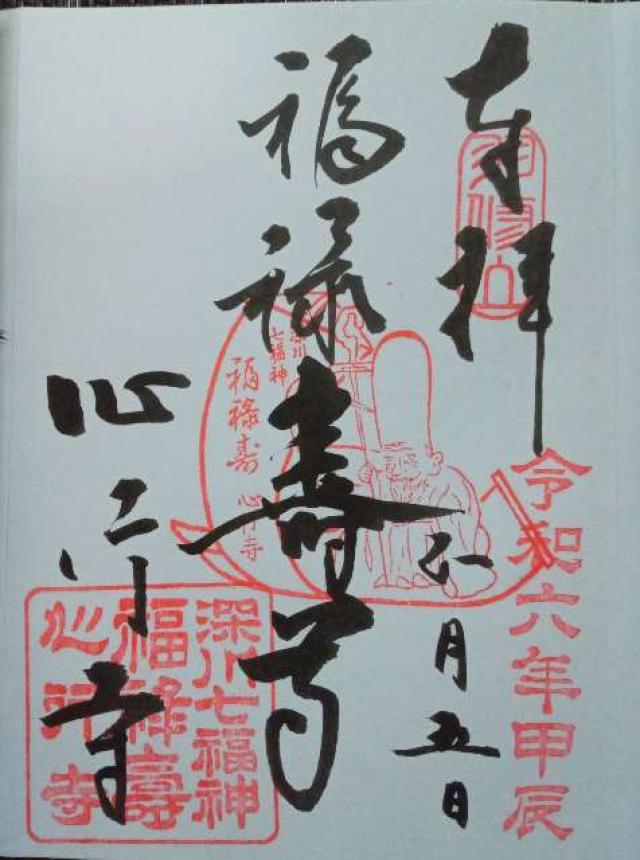 奉拝
修山
令和六年甲辰
正月五日
福禄壽尊
深川
七福神
福禄寿
心行寺
心行寺
深川七福神
福祿壽
心行寺